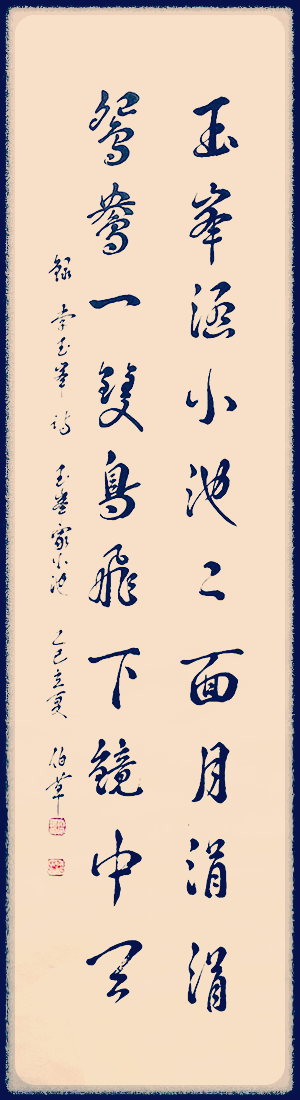 玉峯涵小池〻面月涓涓
鴛鴦一雙鳥飛下鏡中天
錄 李玉峯 詩 玉峯家小池 乙巳立夏 伯草